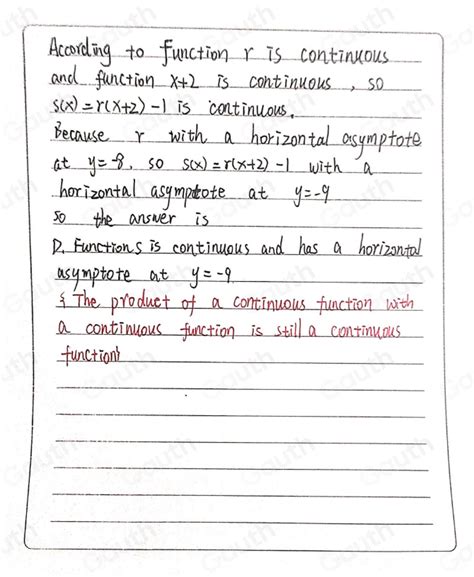 According to function r is continuous
and function x+2 is continuous, so
s(x)=r(x+2)-1 is continuous.
Because r with a horizontal asymptote
at y=-8, so s(x)=r(x+2)-1 with a
horizontal asymptote at y=-9
so the answer is
D. Function s is continuous and has a horizontal
asymptote at y=-9
The product of a continuous function with
a continuous function is still a continuous
function
Gauth